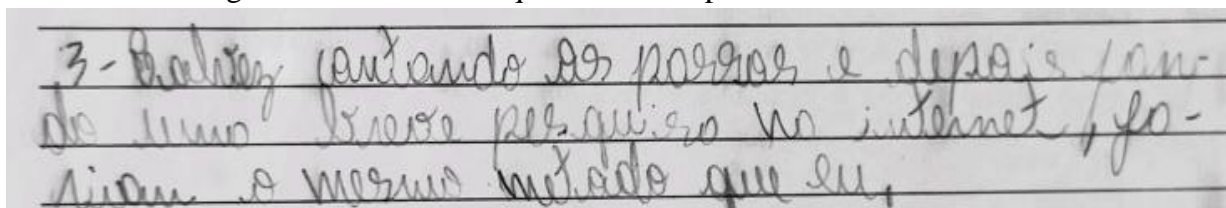 3- Talvez contando os passos e depois
do uma breve pesquisa na internet, fa-
riam o mesmo metodo que eu.